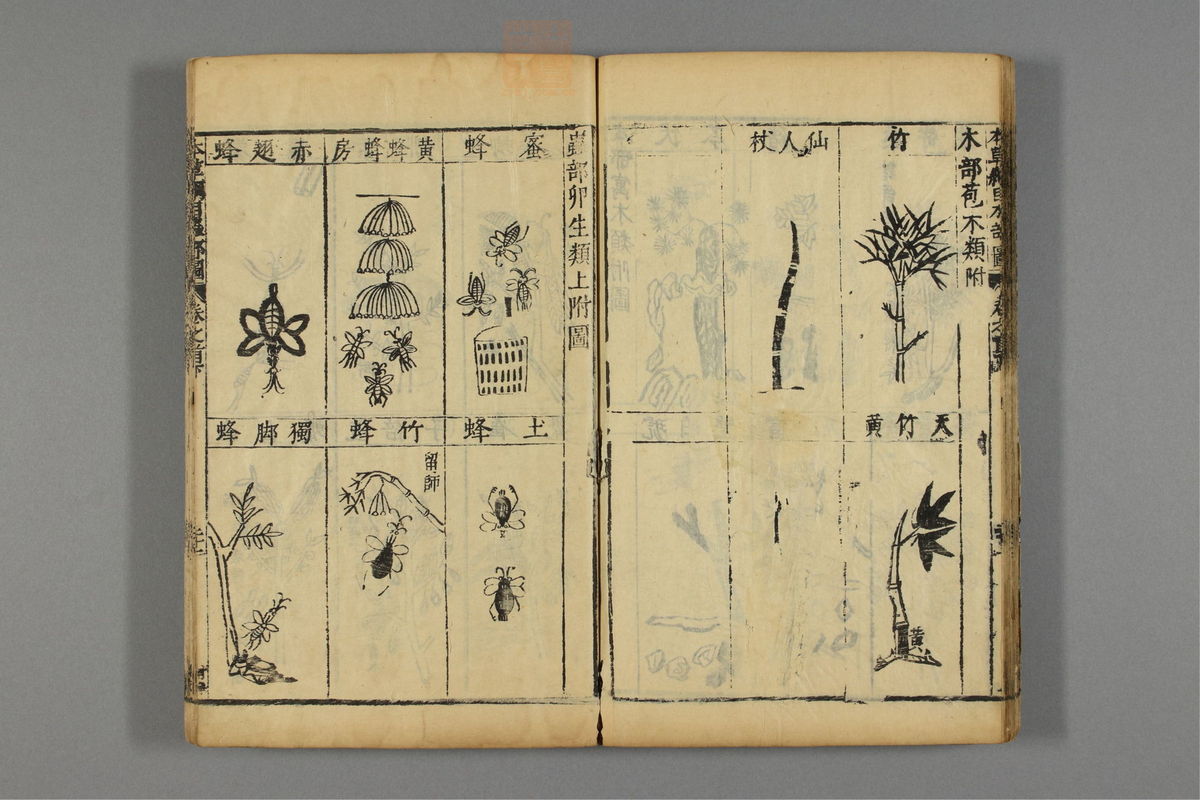 木部苞木類附
竹
仙人杖
天竹黄
黄
蟲部卵生類上附圖
蜜蜂
黄蜂蜂房
赤翅蜂
土蜂
竹蜂
留師
獨脚蜂